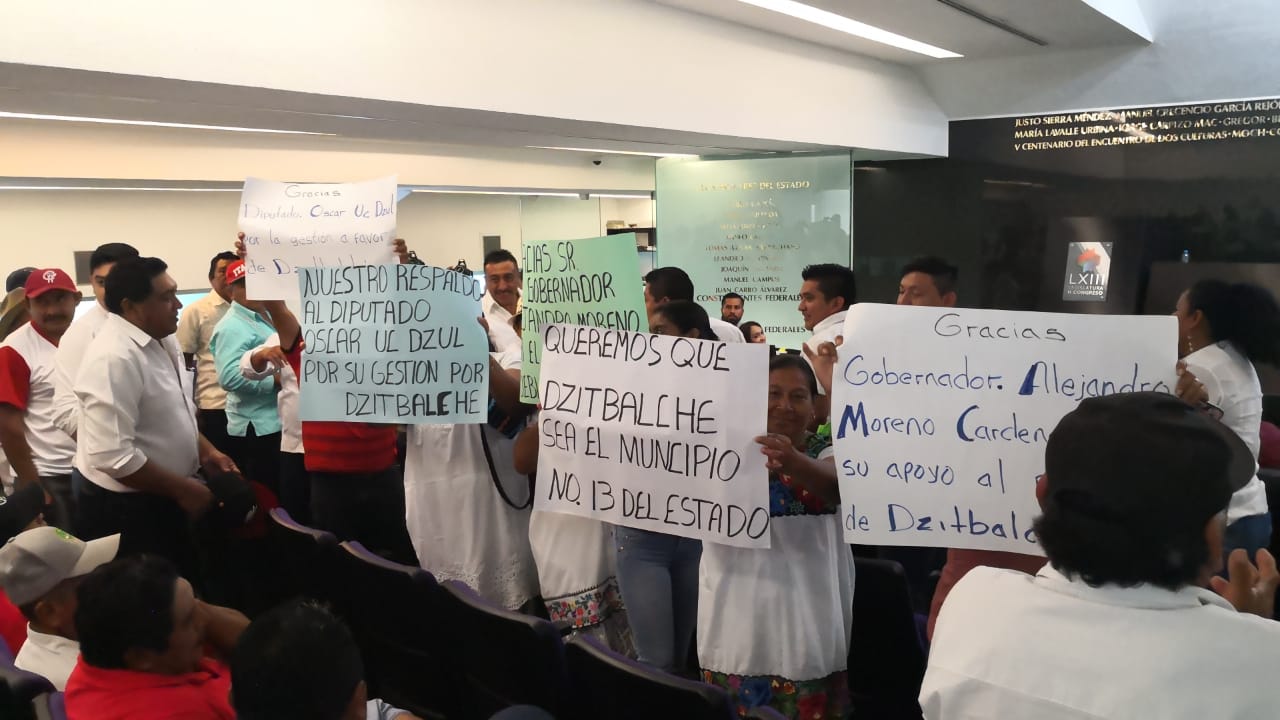 Gracias
Diputado. Oscar Uc Dzul
Por la gestión a favor
de
NUESTRO RESPALDO
AL DIPUTADO
OSCAR UC DZUL
POR SU GESTION POR
DZITBALCHE
SR
GOBERNADOR
MORENO
QUEREMOS QUE
DZITBALCHE
SEA EL MUNCIPIO
NO. 13 DEL ESTADO
Gracias
Gobernador. Alejandro
Moreno Carden
su apoyo al
de Dzitbalc
JUSTO SIERRA MÉNDEZ MANUEL CRECENCIO GARCÍA REJÓN
MARÍA LAVALLE URBINA JORGE CARPIZO MAC-GREGOR
V CENTENARIO DEL ENCUENTRO DE DOS CULTURAS MOCH-C
DEL ESTADO
JOAQUÍN
MANUEL CAMPOS
JUAN CARBO ÁLVAREZ
CONSTITUYENTES FEDERALES
FEDERALES
LXIII
LEGISLATURA
H CONGRESO
ITA